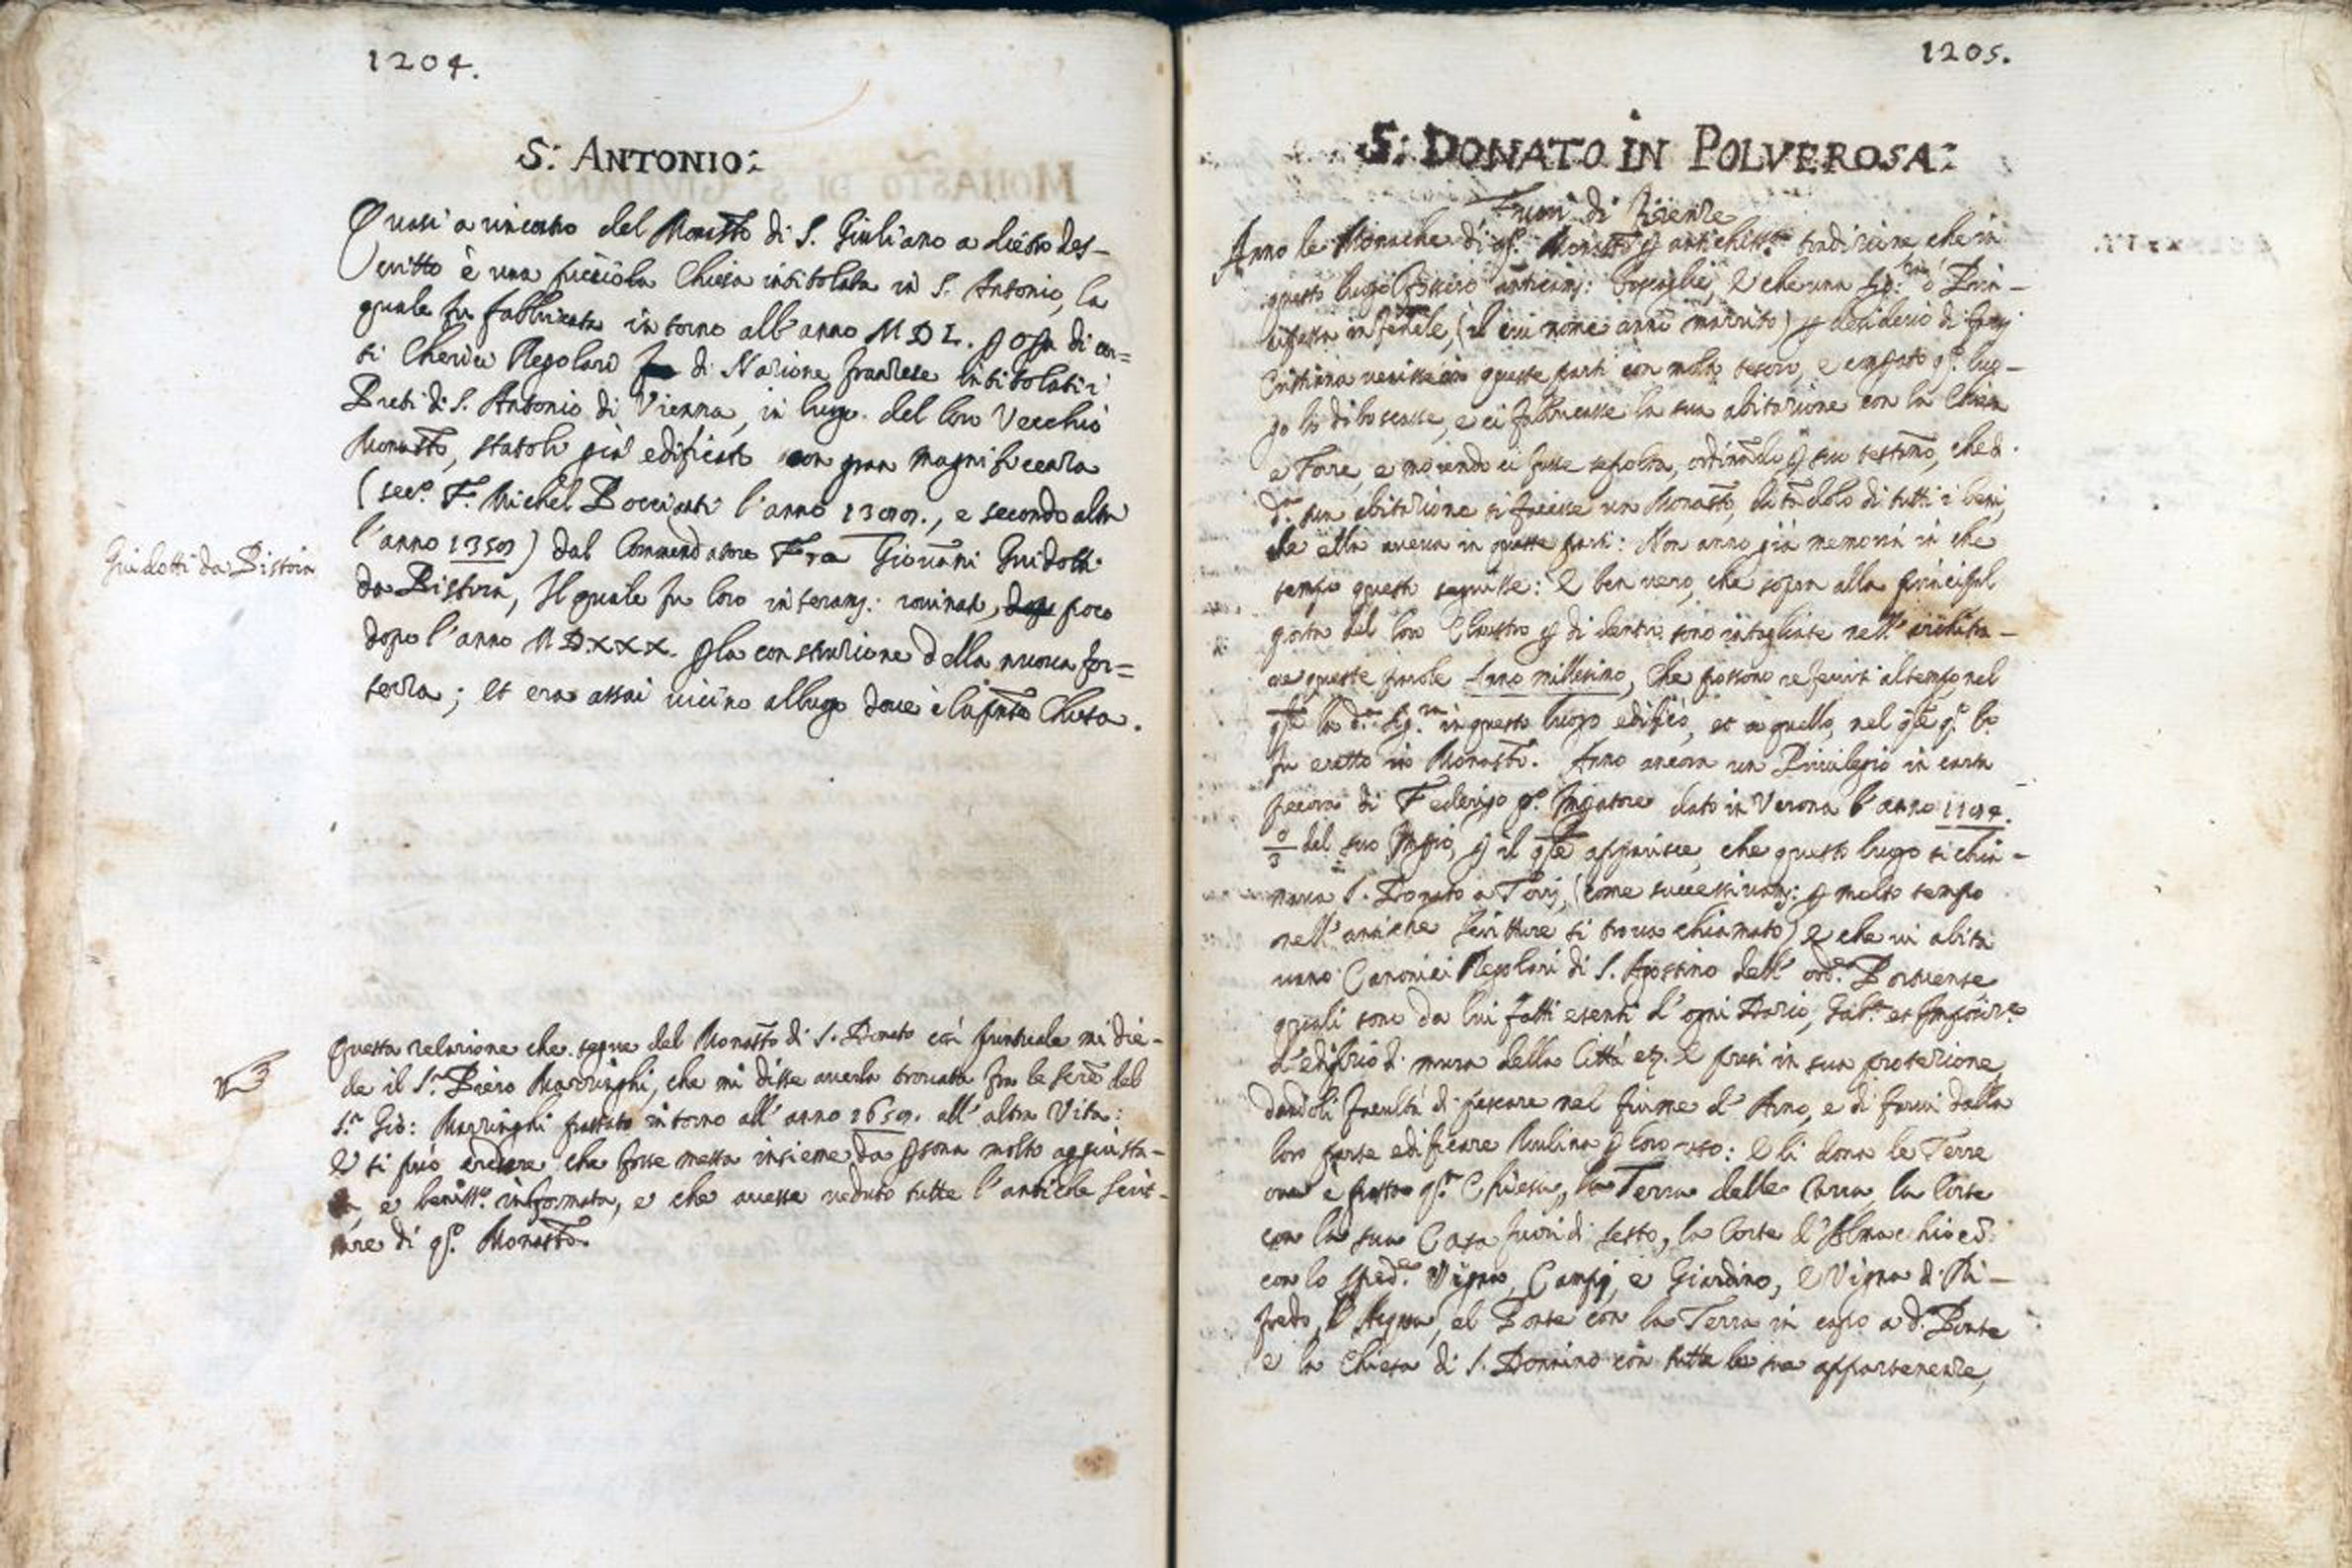 1204.
S: ANTONIO:
Quasi a rincontro del Monasto di S. Giuliano a dietro des-
critto è una picciola Chiesa intitolata in S. Antonio, la
quale fu fabbricata intorno all'anno MDL. p opa di cer=
ti Cherici Regolari di Nazione franzese intitolati i
Preti di S. Antonio di Vienna, in luogo del loro Vecchio
Monasto, statoli già edificato con gran magnificenza
(sec.o F. Michel Poccianti l'anno 1399., e secondo altri
l'anno 1359) dal Commendatore Fra Giovanni Guidotti
da Pistoia, Il quale fu loro interam: rovinato, poco
dopo l'anno MDXXX. p la construzione della nuova for=
tezza; et era assai vicino al luogo dove è la pnte Chiesa.
Guidotti da Pistoia
Questa relazione che segue del Monasto di S. Donato così puntuale mi die-
de il S.r Piero Marringhi, che mi disse averla trovata fra le scre del
S.r Gio: Marringhi passato intorno all'anno 1659. all'altra Vita:
E si può credere che fosse messa insieme da psona molto aggiusta-
ta, e beniss.o informata, e che avesse veduto tutte l'antiche scrit-
ture di q.o Monasto.
1205.
S: DONATO IN POLVEROSA:
Fuori di Firenze
Anno le Monache di q.o Monasto p antichiss.a tradizione che in
questo luogo fossero anticam: boscaglie, E che una Sig.ra o Prin-
cipessa infedele, (il cui nome anno smarrito) p desiderio di farsi
Cristiana venisse in queste parti con molti tesori, e comprato q.o luo-
go lo diboscasse, e ci fabbricasse la sua abitazione con la Chiesa
e Torre, e morendo ci fusse sepolta, ordinando p suo testamo, che d.
d.a sua abitazione si facesse un Monasto, dotandolo di tutti i beni,
che ella aveva in queste parti: Non anno già memoria in che
tempo questo seguisse: È ben vero, che sopra alla principal
porta del loro Claustro p di dentro sono intagliate nell'architra-
ve queste parole Anno millesimo, che possono referirsi al tempo nel
qle la d.a Sig.ra in questo luogo edificò, et a quello, nel qle q.o lo
fu eretto in Monasto. Anno ancora un Privilegio in carta
pecora di Federigo p.o Impatore dato in Verona l'anno 1194.
3 del suo Impio, p il qle apparisce, che questo luogo si chia-
mava S. Donato a Torri, (come successivam: p molto tempo
nell'antiche scritture si trova chiamato) E che vi abita
vano Canonici Regolari di S. Agostino dell'ord.e Portuense
quali sono da lui fatti esenti d'ogni Dazio, Gab.a et
d'edifizio di mura della Città etc. E presi in sua protezione,
dandoli facultà di pescare nel fiume d'Arno, e di farvi dalla
loro parte edificare Mulina p loro uso: E li dona le Terre
ove è posta q.a Chiesa, la Terra delle la Corte
con la sua Casa fuori di Sesto, la Corte d'
con lo sped.e Vigne, Campi, e Giardino, E Vigna di Ri-
fredo, el Ponte con la Terra in capo a d.o Ponte
e la Chiesa di S. Donnino con tutte le sue appartenenze,